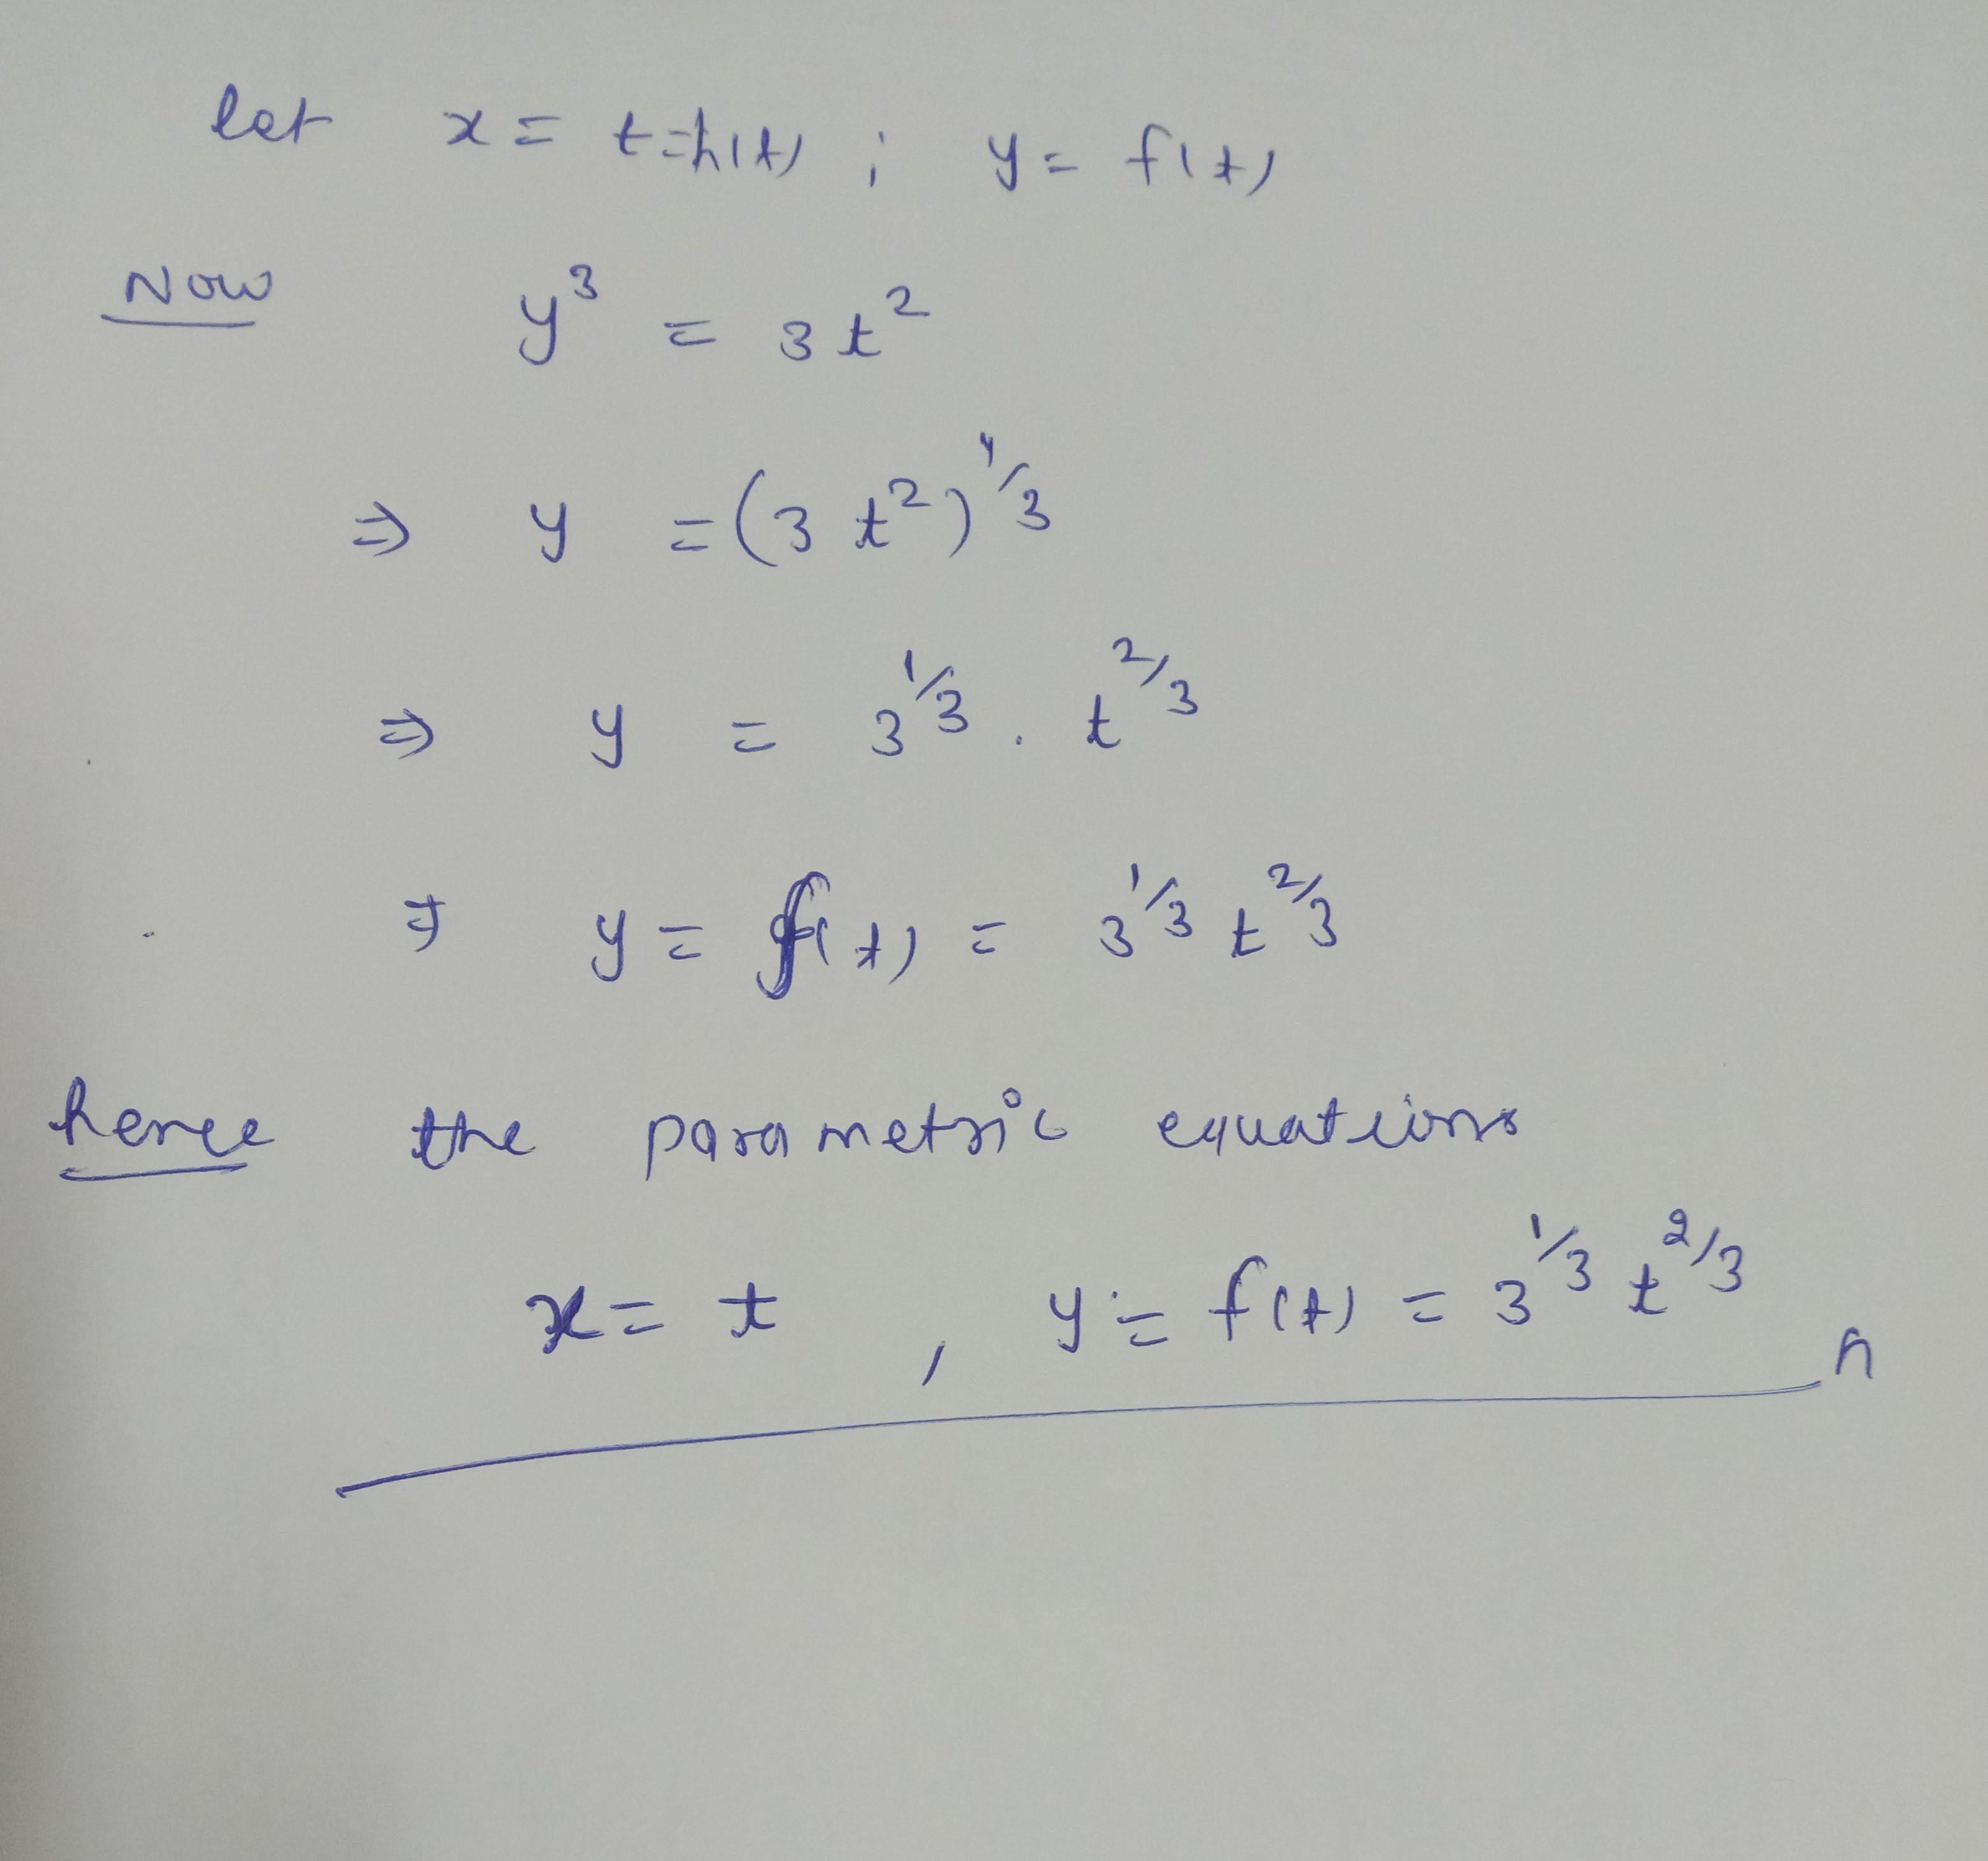 let x = t = h(t) ; y = f(t)
Now y³ = 3t²
⇒ y = (3t²)^1/3
⇒ y = 3^1/3 . t^2/3
⇒ y = f(t) = 3^1/3 t^2/3
hence the parametric equations
x = t , y = f(t) = 3^1/3 t^2/3